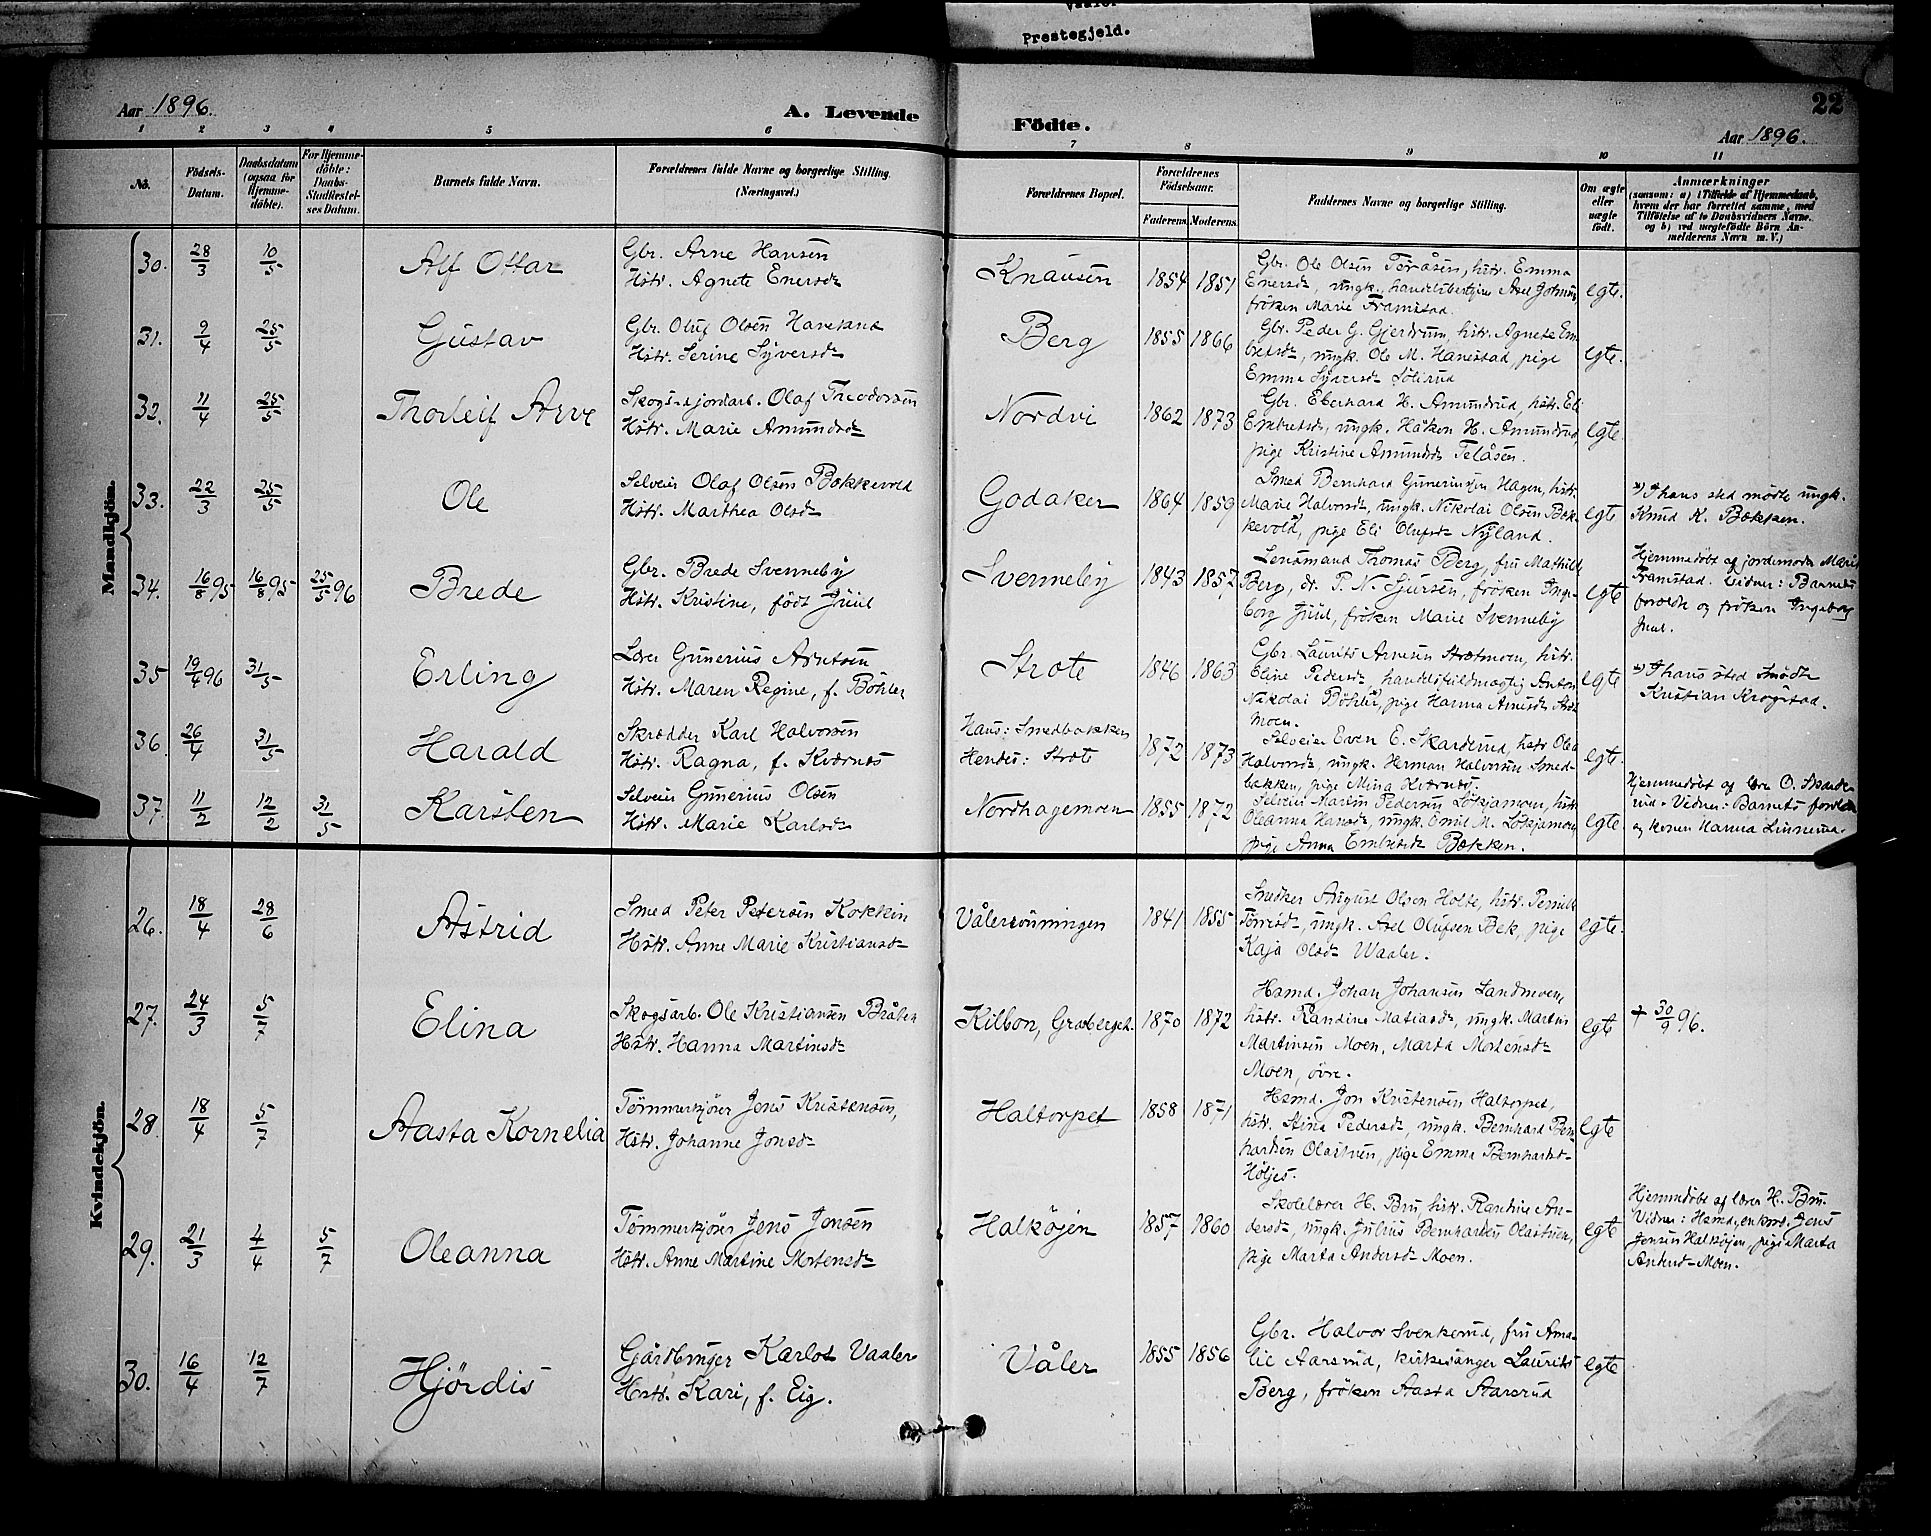 Vaaler
Prestegjeld.
22
Aar 1896.
A. Levende
Födte.
Aar 1896.
1 2 3 4 5 6 7 8 9 10 11
No.
Födsels-
Datum.
Daabsdatum
(ogsaa for
Hjemme-
döbte).
For Hjemme-
döbte:
Daabs-
Stadfæstel-
ses Datum.
Barnets fulde Navn.
Forældrenes fulde Navne og borgerlige Stilling.
(Næringsvei.)
Forældrenes Bopæl.
Forældrenes
Födselsaar.
Faderens. Moderens.
Faddernes Navne og borgerlige Stilling.
Om ægte
eller
uægte
födt.
Anmærkninger
(saasom: a) i Tilfælde af Hjemmedaab,
hvem der har forrettet samme, med
Tilföielse af to Daabsvidners Navne.
og b) ved uægtefödte Börn An-
melderens Navn m. V.)
Mandkjön.
30. 28/3 10/5 Alf Ottar
Gbr. Arne Hansen
Hstr. Agnete Enersdr
Knausen 1854 1851
Gbr. Ole Olsen Teråsen, hstr. Emma
Enersdr, ungk., handelsbetjen Axel
frøken Marie Framstad.
egte.
31. 9/4 25/5 Gustav
Gbr. Oluf Olsen Hanestad
Hstr. Serine Syversdr
Berg 1855 1866
Gbr. Peder G. Gjerdrum, hstr. Agnete Em-
bretsdr, ungk. Ole M. Hanestad, pige
Emma Syversdr Solerud
egte.
32. 11/4 25/5 Thorleif Arve
Skogs- & jordarb. Olaf Theodorsen
Hstr. Marie Amundsdr
Nordvi 1862 1873
Gbr. Eberhard H. Amundrud, hstr. Eli
Embretsdr, ungk. Håken H. Amundrud,
pige Kristine Amundsdr Teråsen.
egte.
33. 22/3 25/5 Ole
Selveier Olaf Olsen Bækkevold
Hstr. Marthea Olsdr
Godaker 1864 1859
Smed Bernhard Guneriusen Hagen, hstr.
Marie Halvorsdr, ungk. Nikolai Olsen Bæk-
kevold, pige Eli Olufsdr Nyland.
egte
*) I hans sted mødte ungk.
Knud K. Bækken.
34. 16/8 95 16/8 95 25/5 96 Brede
Gbr. Brede Svenneby
Hstr. Kristine, född Juul
Svenneby 1843 1857
Lensmand Thomas Berg, fru Mathilde
Berg, dr. P. N. Sjursen, frøken Inge-
borg Juul, frøken Marie Svenneby
egte
Hjemmedøbt af jordemoder Marie
Framstad. Vidner: Barnets
forældre og frøken Ingeborg
Juul.
35 19/4 96 31/5 Erling
Lærer Gunerius Arntsen
Hstr. Maren Regine, f. Böhler
Stræte 1846 1863
Gbr. Laurits Arnesen Strætmoen, hstr.
Eline Pedersdr, handelsfuldmægtig Anton
Nikolai Böhler, pige Hanna Arnesdr Stræt-
moen.
egte
*) I hans sted mødte
Kristian Krogstad.
36. 26/4 31/5 Harald
Skrædder Karl Halvorsen
Hstr. Ragna, f. Kværnes
Hans: Smedbakken
Hendes: Stræte
1872 1873
Selveier Even E. Skarderud, hstr Olea
Halvorsdr, ungk. Herman Halvorsen Smed-
bakken, pige Mina Kværnes.
egte.
37 11/2 12/2 31/5 Karsten
Selveier Gunerius Olsen
Hstr. Marie Karlsdr
Nordhagemoen 1855 1872
Selveier Martin Pedersen Løkjamoen, hstr.
Oleanna Hansdr, ungk. Emil M. Løkjamoen,
pige Anna Embretsdr Bækken.
egte
Hjemmedøbt af lærer O. Skarde-
rud. Vidner: Barnets forældre
og konen Hanna Linnerud.
Kvindekjön.
26. 18/4 28/6 Astrid
Smed Peter Petersen Kokkin
Hstr. Anne Marie Kristiansdr
Vålersætningen 1841 1855
Snedker August Olsen Holte, hstr. Pernille
Torersdr, ungk. Axel Olufsen Bek, pige
Kaja Olsdr Waaler.
egte.
27. 24/3 5/7 Elina
Skogsarb. Ole Kristiansen Bråten
Hstr. Hanna Martinsdr
Kilbon, Graberget. 1870 1872
Hsmd. Johan Johansen Sandmoen,
hstr. Randine Matiasdr, ungk. Martin
Martinsen Moen, Marta Mortensdr
Moen, øvre.
egte
† 30/9 96.
28 18/4 5/7 Aasta Kornelia
Tømmerkjører Jens Kristensen,
Hstr. Johanne Jonsdr
Haltorpet 1858 1871
Hsmd. Jon Kristensen Haltorpet,
hstr. Stina Pedersdr, ungk. Bernhard Bern-
hardsen Olastuen, pige Emma Bernhardsdr
Höljes.
egte
29. 21/3 4/4 5/7 Oleanna
Tømmerkjører Jens Jensen
Hstr. Anne Martine Mortensdr
Halköjen 1857 1860
Skolelærer H. Bru, hstr. Randine An-
dersdr, ungk. Julius Bernhardsen Olastuen,
pige Marta Andersdr Moen.
egte
Hjemmdøbt af lærer H. Bru.
Vidner: Hsmd, enkem. Jens
Jensen Halköjen, pige Marta
Andersdr Moen.
30. 16/4 12/7 Hjördis
Gårdbruger Karlot Vaaler
Hstr. Kari, f. Eig.
Våler 1855 1856
Gbr. Halvor Svenkerud, fru Ama-
lie Aarsrud, kirkesanger Laurits
Berg, frøken Aasta Aarsrud
egte